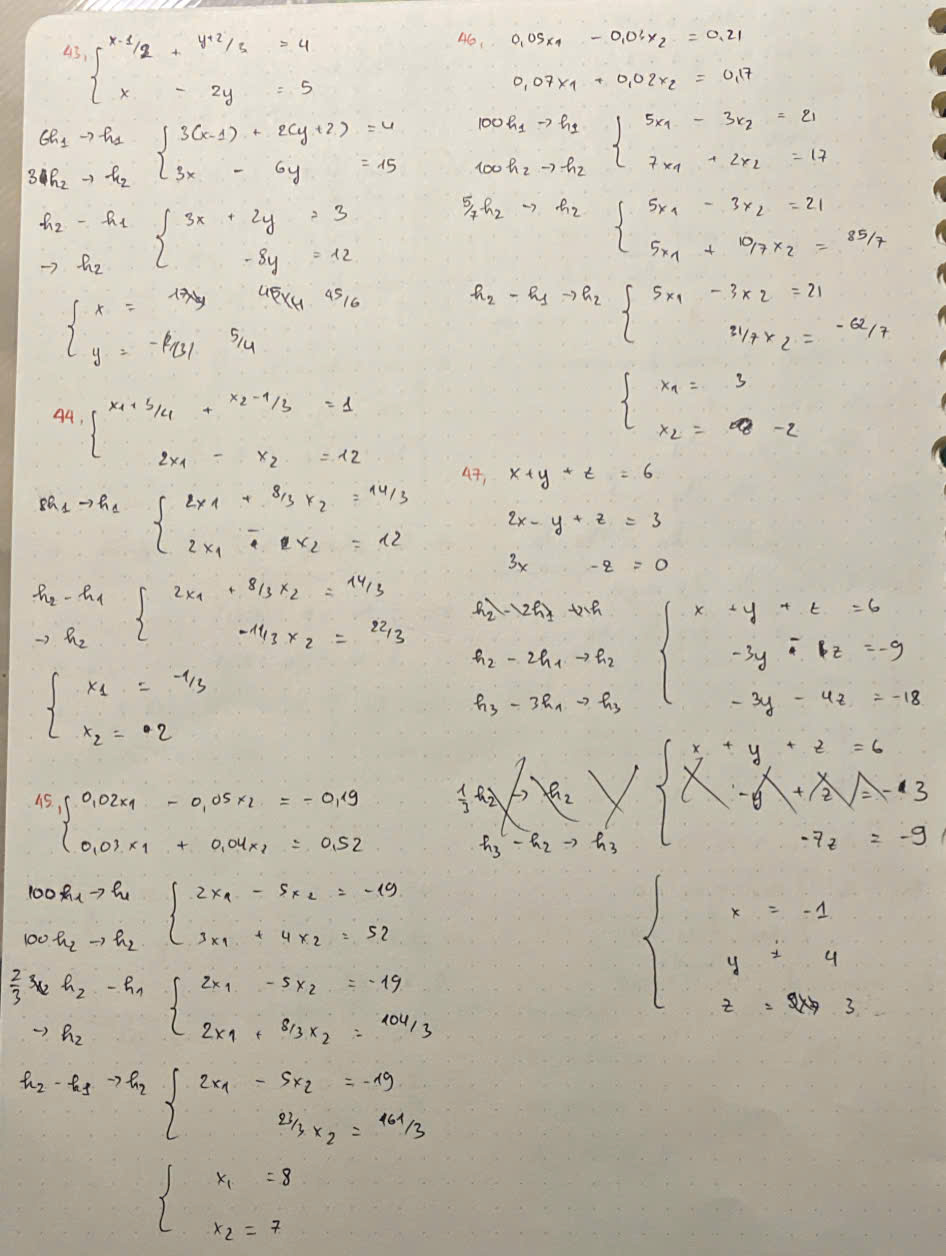 43, x-1/2 + y+2/3 = 4
x - 2y = 5
6h1 → h1 3(x-1) + 2(y+2) = 4
3h2 → h2 3x - 6y = 15
h2 - h1 3x + 2y = 3
→ h2 -8y = 12
x = 45/6
y = 5/4
44, x1+3/4 + x2-1/3 = 1
2x1 - x2 = 12
8h1 → h1 2x1 + 8/3 x2 = 14/3
2x1 - x2 = 12
h2 - h1 2x1 + 8/3 x2 = 14/3
→ h2 -11/3 x2 = 22/3
x1 = -1/3
x2 = 2
45, 0,02x1 - 0,05x2 = -0,19
0,03x1 + 0,04x2 = 0,52
100h1 → h1 2x1 - 5x2 = -19
100h2 → h2 3x1 + 4x2 = 52
2/3 h2 - h1 2x1 - 5x2 = -19
→ h2 2x1 + 8/3 x2 = 104/3
h2 - h1 → h2 2x1 - 5x2 = -19
23/3 x2 = 161/3
x1 = 8
x2 = 7
46, 0,05x1 - 0,03x2 = 0,21
0,07x1 + 0,02x2 = 0,17
100h1 → h1 5x1 - 3x2 = 21
100h2 → h2 7x1 + 2x2 = 17
5/7 h2 → h2 5x1 - 3x2 = 21
5x1 + 10/7 x2 = 85/7
h2 - h1 → h2 5x1 - 3x2 = 21
31/7 x2 = -62/7
x1 = 3
x2 = -2
47, x+y + z = 6
2x - y + z = 3
3x - z = 0
h2 - 2h1 → h x + y + z = 6
h2 - 2h1 → h2 -3y - z = -9
h3 - 3h1 → h3 -3y - 4z = -18
x + y + z = 6
1/3 h2 → h2 -y + z = -3
h3 - h2 → h3 -7z = -9
x = -1
y = 4
z = 3